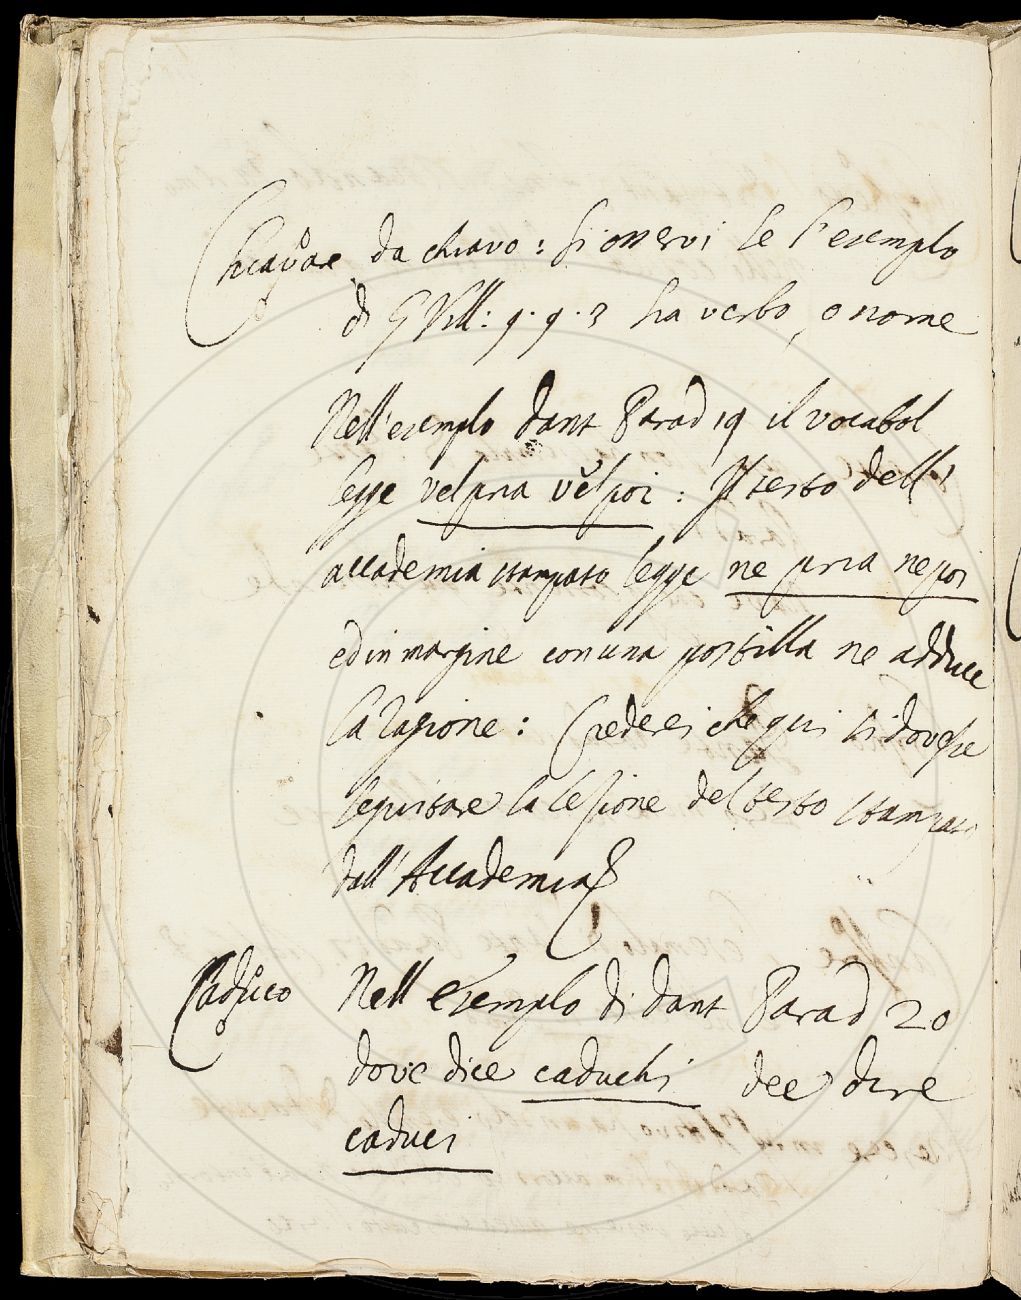 Chiavare da chiavo: si osservi se l'esemplo
di G Vill: 9. 9. 3 sia verbo, o nome
Nell'esemplo dant Parad 19 il vocabol
legge vel pria vel poi: Il testo dell'
accademia stampato legge ne pria ne poi
ed in margine con una postilla ne adduce
la ragione: Crederei che qui si dovesse
seguitare la lezione del testo stampato
dall'Accademia
Caduco Nell esemplo di dant Parad 20
dove dice caduchi dee dire
caduci